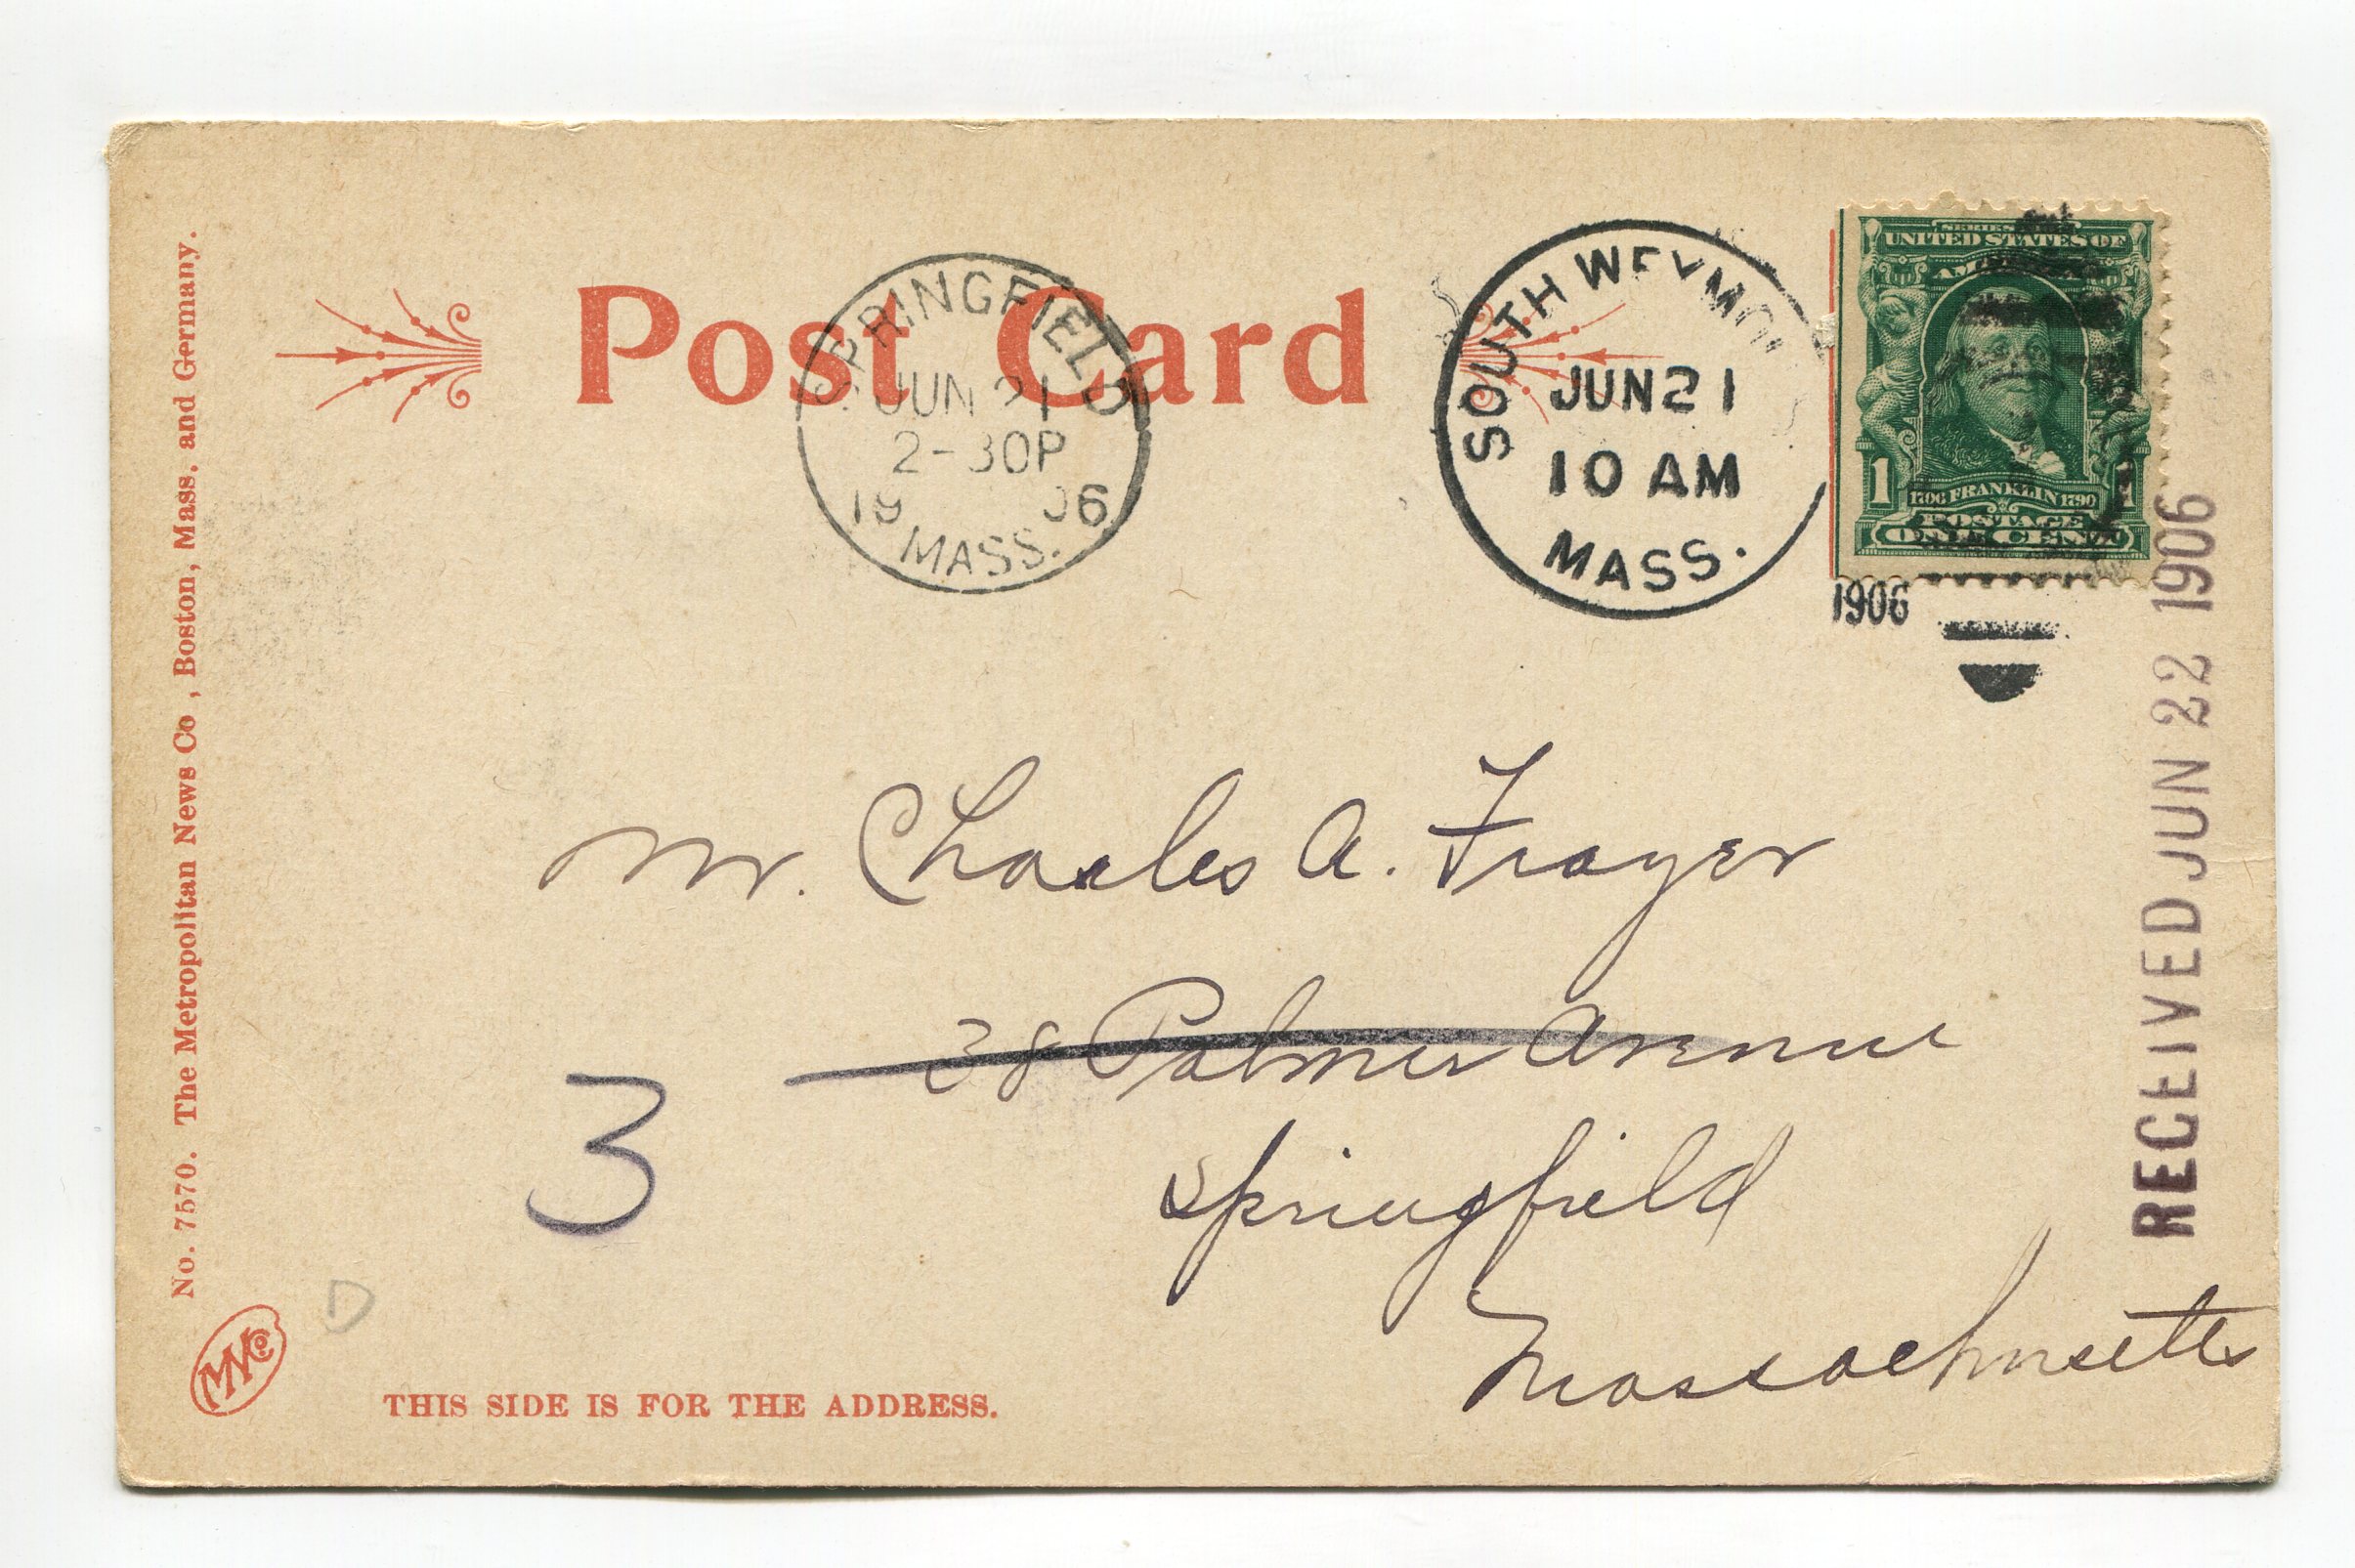 Post Card
SPRINGFIELD
JUN 21
2-30P
1906
MASS.
SOUTH WEYMOU
JUN 21
10 AM
MASS.
1906
SERIES
UNITED STATES OF
AMERICA
1
1706 FRANKLIN 1790
POSTAGE
ONE CENT
RECEIVED JUN 22 1906
Mr. Charles A. Frayer
38 Palmer Avenue
3
Springfield
Massachusetts
D
No. 7570. The Metropolitan News Co , Boston, Mass. and Germany.
MNCo
THIS SIDE IS FOR THE ADDRESS.